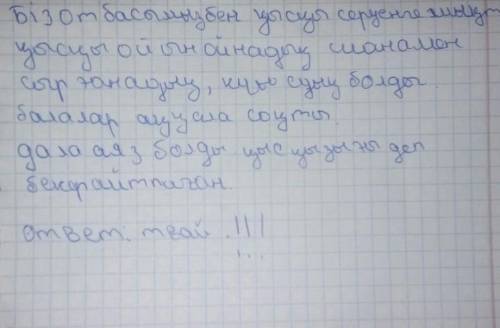 Біз отбасымызбен қысқы серуенге шықт
қысқы ойын ойнадық шанамен
сырғанадық, күю суық болды.
балалар ақұсла соқты.
дала аяз болды қыс қызығы деп
бекерайтпаған.
ответ: твай.!!!